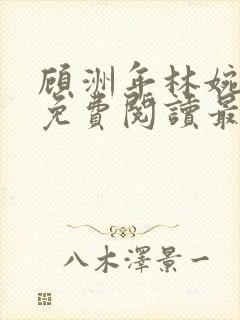 顾洲年林婉
免費閱讀最
八木澤景一